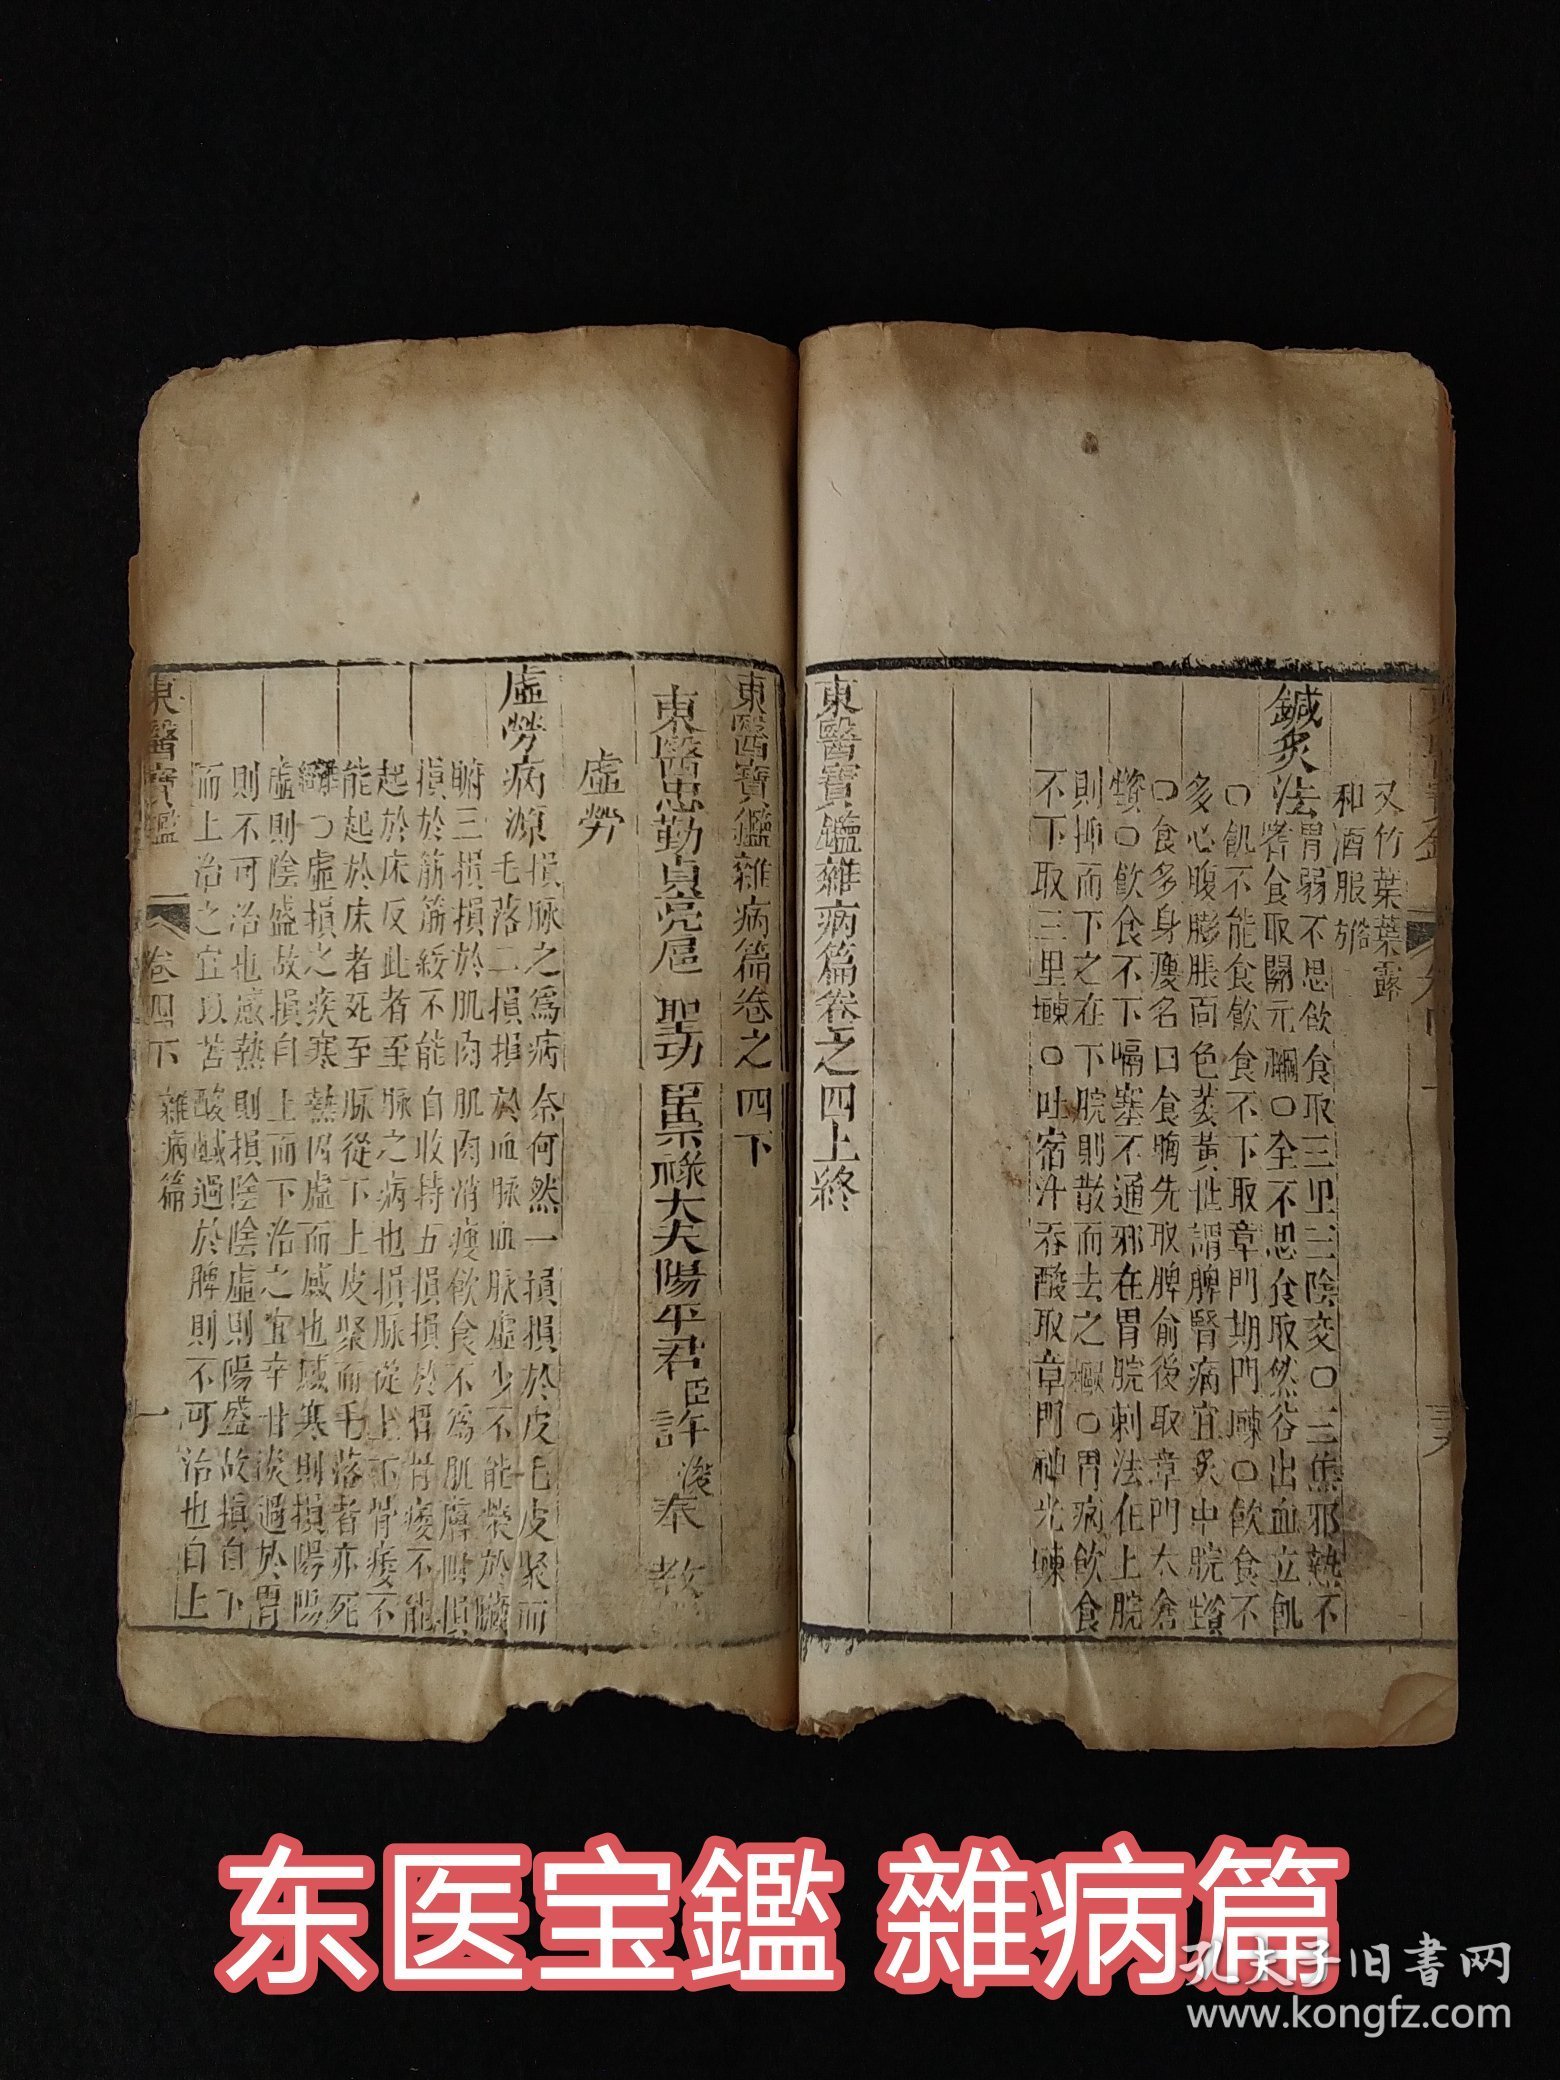 又竹葉葉露
和酒服
鍼灸法
胃弱不思飲食取三里三陰交〇三焦邪熱不
嗜食取關元〇全不思食取然谷出血立飢
〇飢不能食飲食不下取章門期門〇飲食不
多心腹膨脹面色萎黃世謂脾腎病宜灸中脘
〇食多身瘦名曰食㑊先取脾俞後取章門太倉
〇飲食不下嗝塞不通邪在胃脘刺法在上脘
則抑而下之在下脘則散而去之〇胃病飲食
不下取三里〇吐宿汁吞酸取章門神光
東醫寶鑑雜病篇卷之四上終
東醫寶鑑雜病篇卷之四下
東醫忠勤貞亮扈 聖功
崇祿大夫陽平君臣許浚奉 教
虛勞
虛勞病源
損脉之爲病奈何然一損損於皮毛皮聚而
毛落二損損於血脉血脉虛少不能榮於臟
腑三損損於肌肉肌肉消瘦飲食不爲肌膚四損
損於筋筋緩不能自收持五損損於骨骨痿不能
起於床反此者至脉之病也損脉從上下骨痿不
能起於床者死至脉從下上皮聚而毛落者亦死
〇虛損之疾寒熱因虛而感也感寒則損陽陽
虛則陰盛故損自上而下治之宜辛甘淡過於胃
則不可治也感熱則損陰陰虛則陽盛故損自下
而上治之宜以苦酸鹹過於脾則不可治也自上
東醫寶鑑 卷四下 雜病篇 一
东医宝鑑 雜病篇
孔夫子旧书网
www.kongfz.com